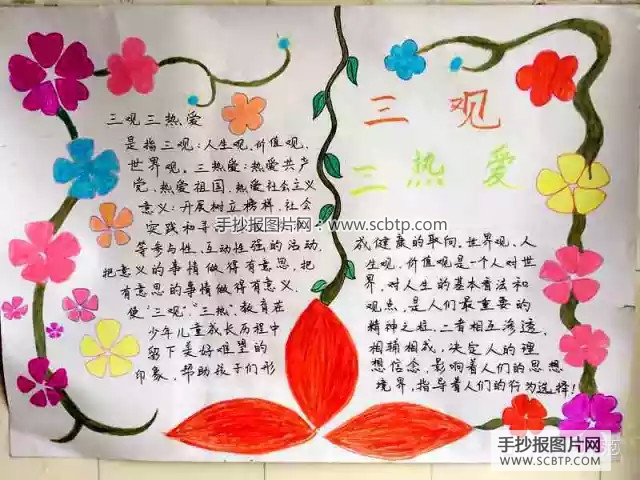 三观三热爱
是指三观：人生观，价值观，
世界观。三热爱：热爱共产
党、热爱祖国、热爱社会主义
意义：开展树立榜样，社会
实践和寻
等参与性、互动性强的活动，
把意义的事情做得有意思，把
有意思的事情做得有意义，
使“三观”、“三热”教育在
少年儿童成长历程中
留下美好难望的
印象，帮助孩子们形
三 观
三 热 爱
成健康的取向。世界观、人
生观、价值观是一个人对世
界，对人生的基本看法和
观点，是人们最重要的
精神之柱，三者相互渗透，
相辅相成，决定人的理
想信念，影响着人们的思想
境界，指导着人们的行为选择！
手抄报图片网：www.scbtp.com
手抄报图片网
WWW.SCBTP.COM